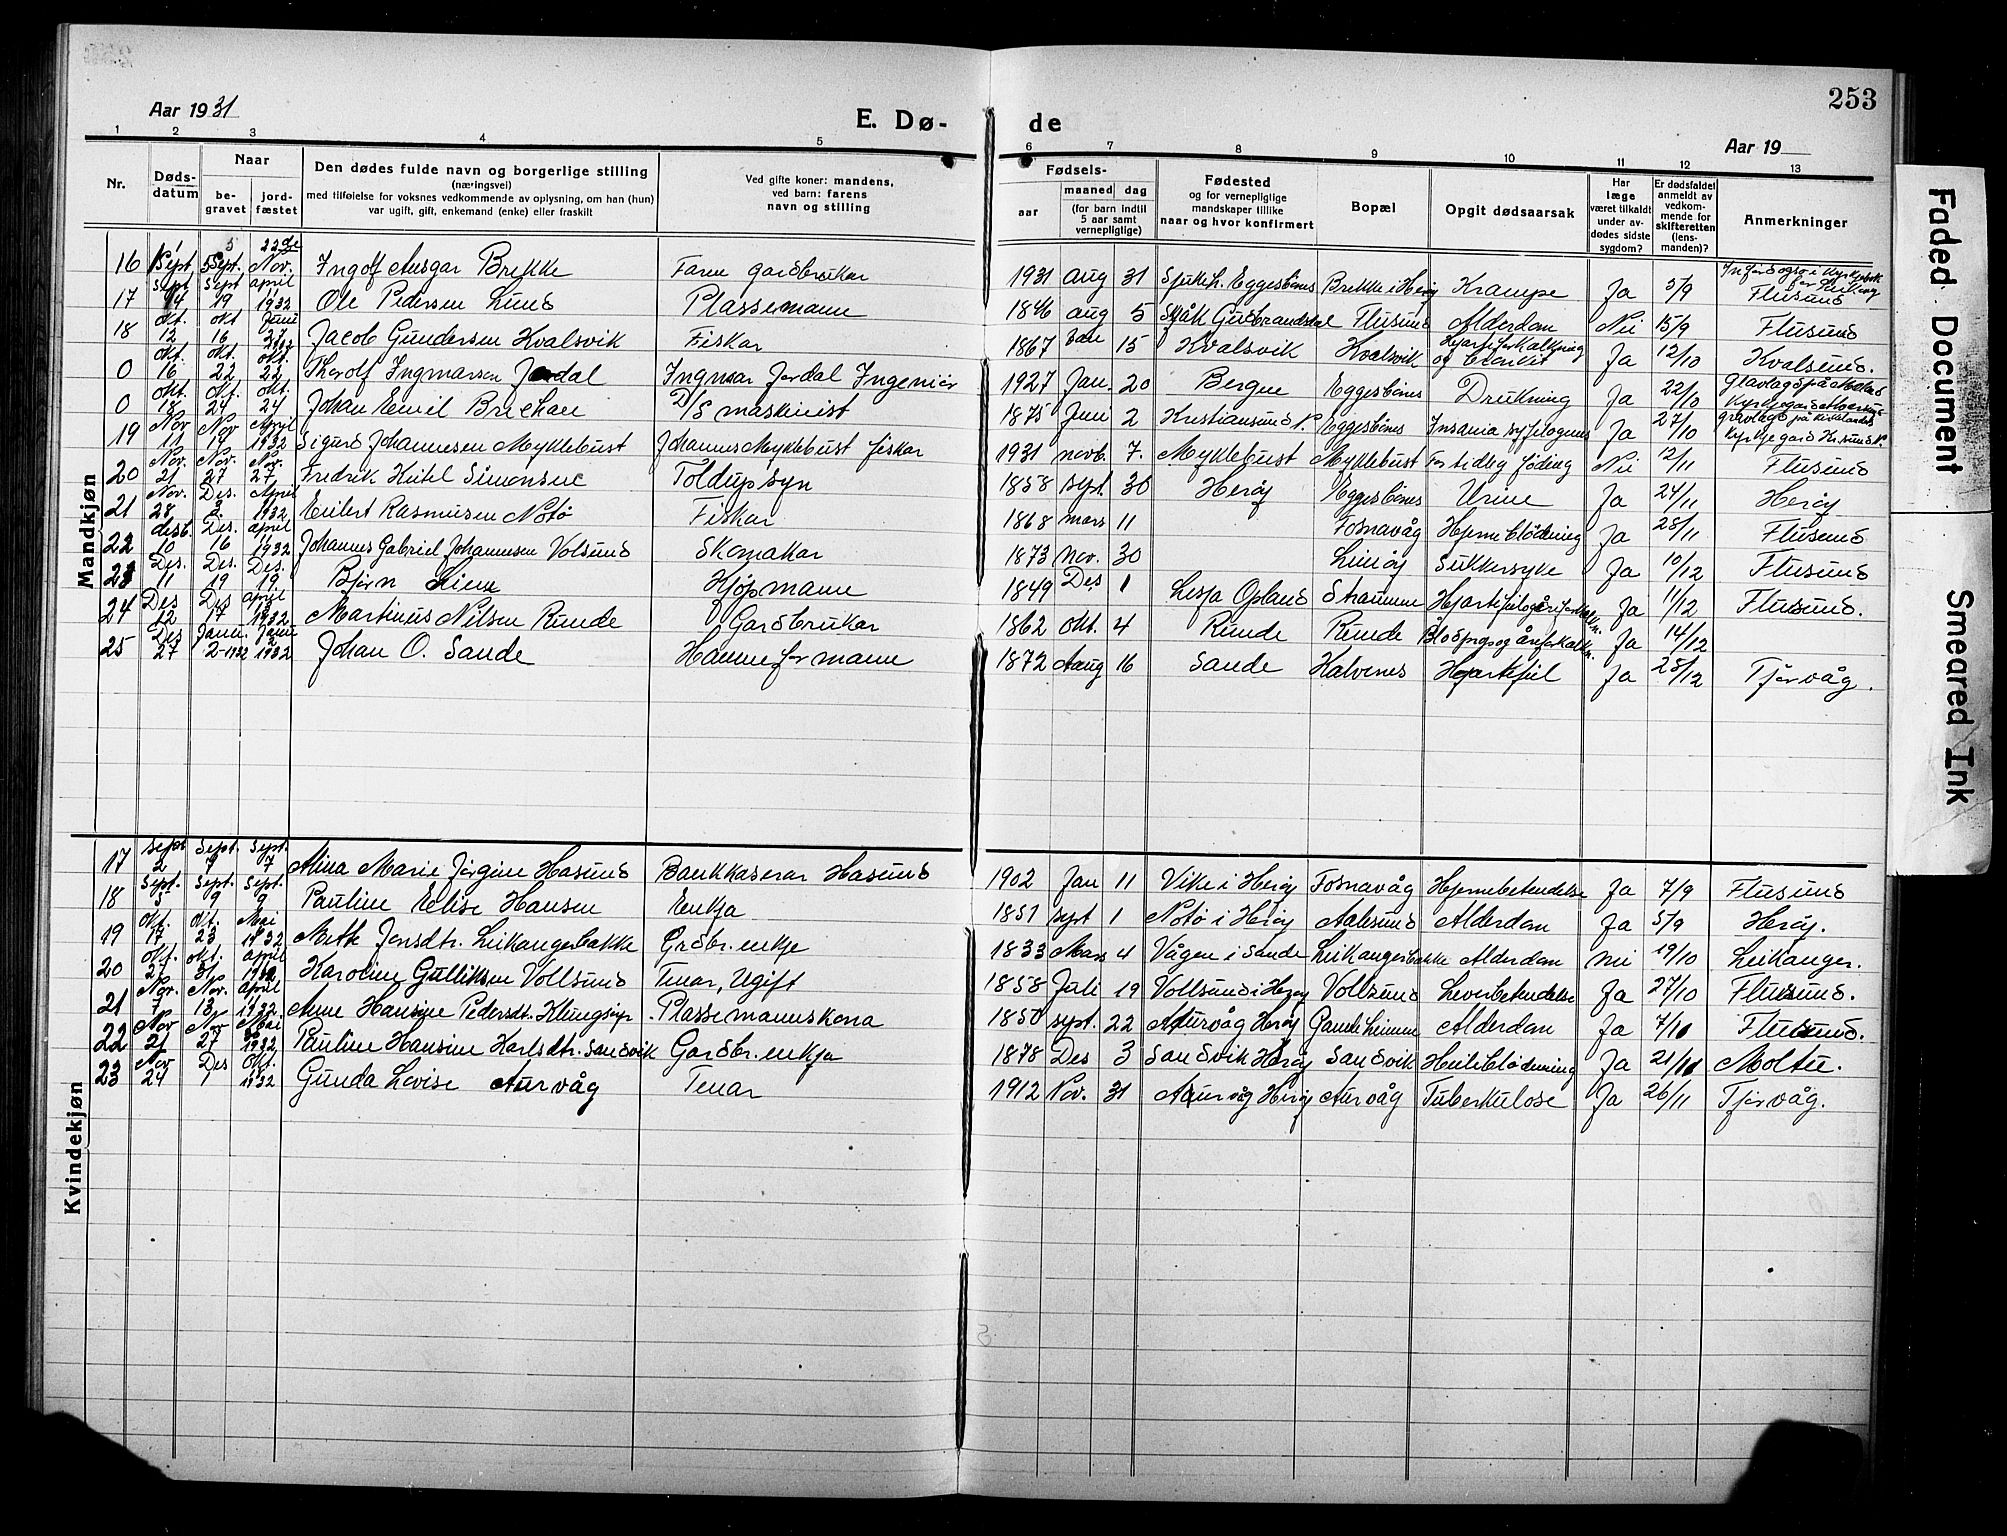 253
Aar 1931
E. Dø-
de
Aar 19
1 2 3 4 5 6 7 8 9 10 11 12 13
Nr.
Døds-
datum
Naar
be-
gravet
jord-
fæstet
Den dødes fulde navn og borgerlige stilling
(næringsvei)
med tilføielse for voksnes vedkommende av oplysning, om han (hun)
var ugift, gift, enkemand (enke) eller fraskilt
Ved gifte koner: mandens,
ved barn: farens
navn og stilling
Fødsels-
aar
maaned dag
(for barn indtil
5 aar samt
vernepligtige)
Fødested
og for vernepligtige
mandskaper tillike
naar og hvor konfirmert
Bopæl
Opgit dødsaarsak
Har
læge
været tilkaldt
under av-
dødes sidste
sygdom?
Er dødsfaldet
anmeldt av
vedkom-
mende for
skifteretten
(lens-
manden)?
Anmerkninger
Mandkjøn
16 Sept. 5 Sept. 22de Nov. Ingolf Ansgar Brekke Faren gardbrukar 1931 aug 31 Brekke i Herøy Krampe Ja 5/9
17 Sept 14 Sept 19 april 1932 Ole Pedersen Lund Plassemann 1846 aug 5 Skjåk Gudbrandsdal Flusund Alderdom Nei 15/9 Flusund
18 okt. 12 okt 16 Jacob Gundersen Kvalsvik Fiskar 1867 Jan 15 Kvalsvik Kvalsvik Hjarteforkalkning og Ja 12/10 Kvalsund.
0 okt. 16 okt. 22 okt. 22 Thorolf Ingmarsen Jordal Ingmar Jordal Ingeniør 1927 Jan. 20 Bergen Eggesbønes Drukning Ja 22/10
0 okt. okt. 24 okt. 24 Johan Emil Brechan D/S maskinist 1875 Juni 2 Kristiansund N. Eggesbønes Insania Ja 27/10
19 Nov 11 Nov 19 April 1932 Sigurd Johannesen Myklebust Johannes Myklebust fiskar 1931 novb. 7. Myklebust Myklebust For tidleg føding Nei 12/11 Flusund
20 Nov. 21 Nov. 27 Nov. 27 Fredrik Kitil Simonsen Toldupsyn 1858 sept. 30 Herøy Eggesbønes Urine Ja 24/11 Herøy
21 Nov. 28 Des. 3. April 1932 Eilert Rasmusen Notø Fiskar 1868 mars 11 Fosnavåg Hjerneblødning Ja 28/11 Flusund
22 desb. 10 Des. 16 april 1932 Johannes Gabriel Johannesen Volsund Skomakar 1873 nov. 30 Leinøy Sukkersyke Ja 10/12 Flusund
23 Des. 11 Des. 19 Des. 19 Bjørn Lien Kjøpmann 1849 Des 1 Lesja Opland Straumen Ja 11/12 Flusund.
24 Des 12 Des 17 april 1932 Martinus Nilsen Runde Gardbrukar 1862 okt. 4 Runde Runde Ja 14/12
25 Des 27 Janu. 2-1932 Janu 2 1932 Johan O. Sande Handelsformann 1872 Aaug 16 Sande Kalvenes Hjartefeil Ja 28/12 Tjørvåg.
Kvindekjøn
17 Sept 2 Sept. 7 Sept. 7 Alma Marie Jørgine Hasund Bankkaserar Hasund 1902 Jan 11 Vike i Herøy Fosnavåg Hjernebetendelse Ja 7/9 Flusund
18 Sept. 5 Sept. 9 Sept. 9 Pauline Elise Hansen Enkja 1851 sept 1 Notø i Herøy Aalesund Alderdom Ja 5/9 Herøy.
19 Okt. 17 okt. 23 Mai 1932 Mette Jensdtr. Leikangerbakke Grdbr. enkje 1833 Mars 4 Vågen i Sande Leikangerbakke Alderdom nei 19/10 Leikanger.
20 Okt. 27 okt. 31 april 1932 Karoline Gulliksen Vollsund Tenar, Ugift 1858 Juli 19 Vollsund i Herøy Vollsund Leverbetendelse Ja 27/10 Flusund.
21 Nov. 7 Nov. 13 april 1932 Anne Hansine Pedersdt. Klungsøyr Plassemannskona 1850 sept. 22 Aurvåg Herøy Alderdom Ja 7/11 Flusund.
22 Nov 21 Nov 27 Mai 1932 Pauline Hansine Karlsdtr. Sandvik Gardbr. enkja 1878 Des 3 Sandvik Herøy Sandvik Ja 21/11 Moltu.
23 Nov 24 Des 1 Okt. 1932 Gunda Lovise Aurvåg Tenar 1912 Nov. 31 Aurvåg Herøy Aurvåg Tuberkulose Ja 26/11 Tjørvåg.
Faded Document
Smeared Ink